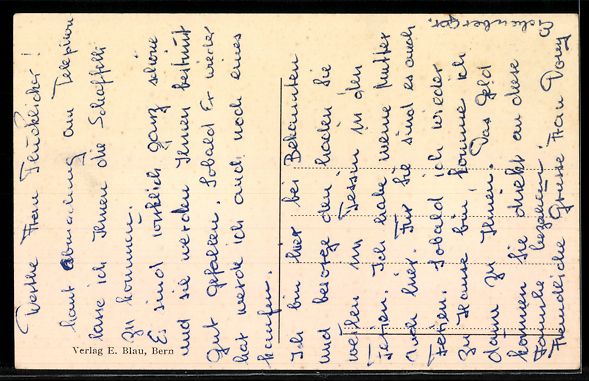 Werthe Frau
laut Abmachung am Telephon
lasse ich Ihnen die Schaffelli
zu kommen.
Es sind wirklich ganz schöne
und sie werden Ihnen bestimmt
gut gefallen. Sobald Er wieder
hat werde ich auch noch eines
kaufen.
Ich bin hier bei Bekannten
und besorge den Laden Sie
weilen im Tessin in den
Ferien. Ich habe meine Mutter
auch hier. Für Sie sind es auch
Ferien. Sobald ich wieder
zu Hause bin, komme ich
dann zu Ihnen. Das Geld
können Sie direkt an diese
Familie bezahlen.
Freundliche Grüsse Frau
Verlag E. Blau, Bern